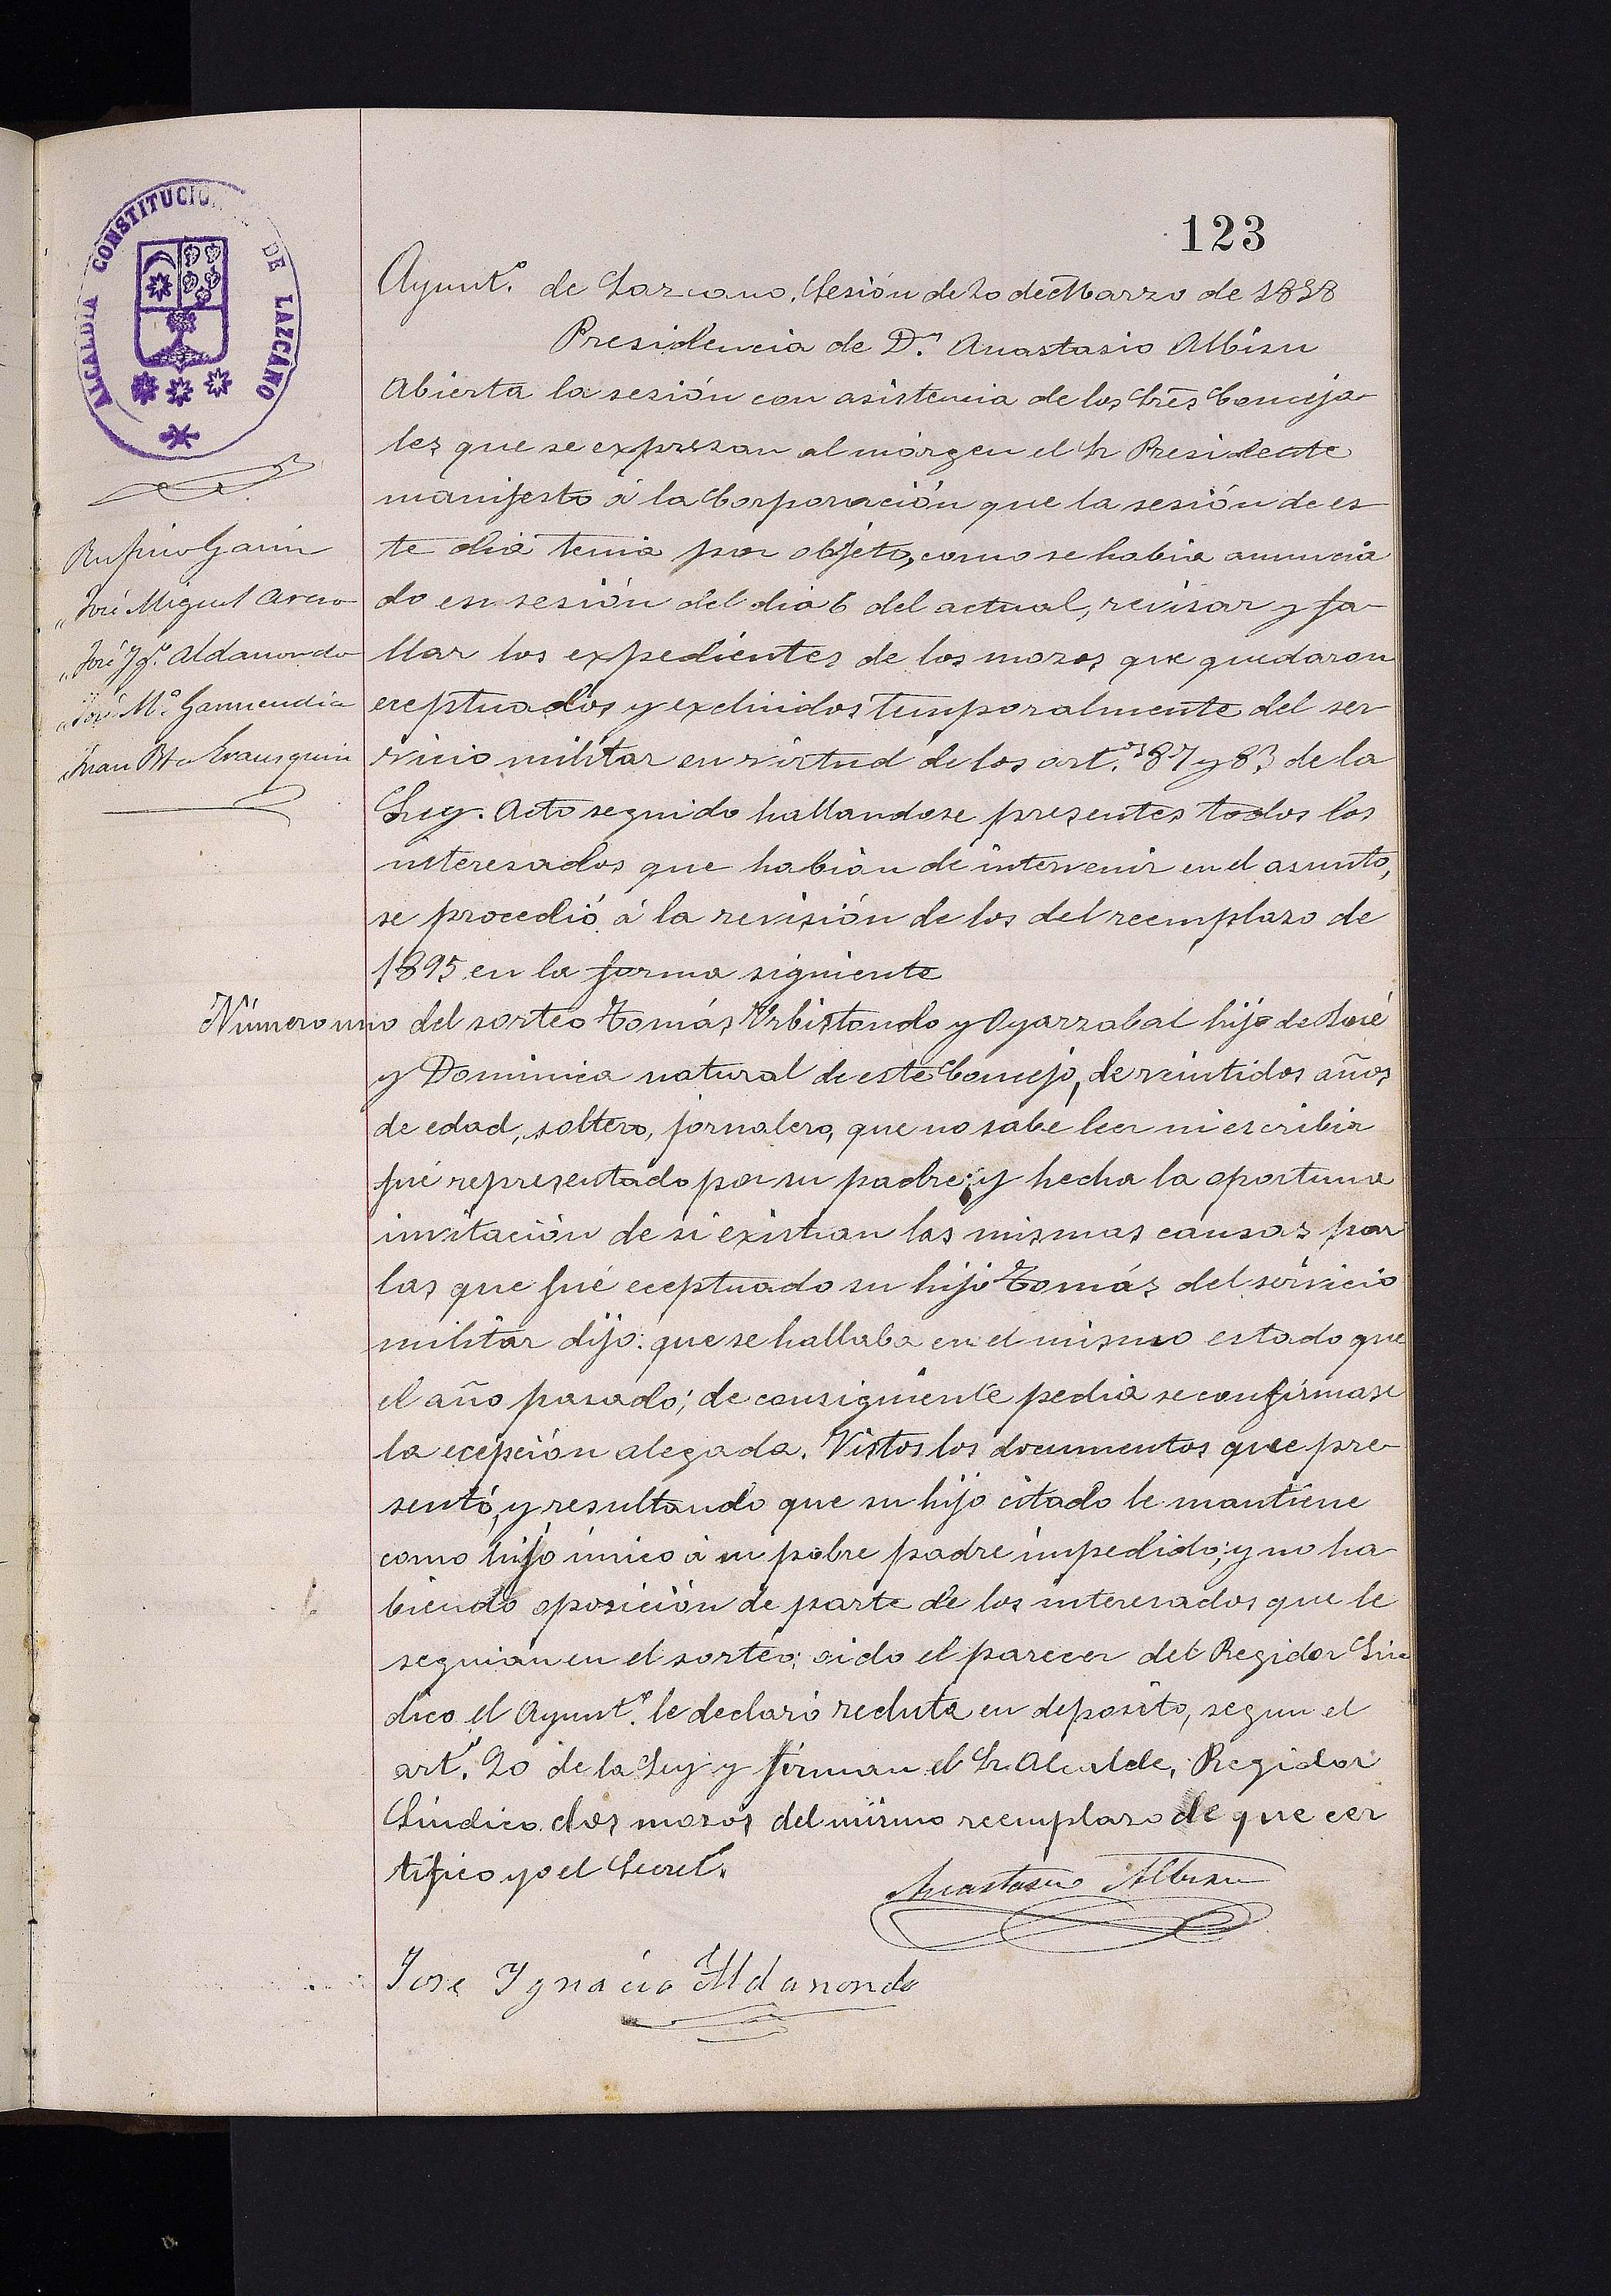 123
ALCALDIA CONSTITUCIONAL DE LAZCANO
Ayunt.º de Lazcano. Sesión de 20 de Marzo de 1898
Presidencia de D.n Anastasio Albisu
Rufino Garin
" José Miguel
" José Ygº. Aldanondo
" José Mª. Garmendia
" Juan Bta
Abierta la sesión con asistencia de los Sres Conceja-
les que se expresan al márgen el Sr Presidente
manifesto á la Corporación que la sesión de es-
te dia tenia por objeto, como se habia anuncia
do en sesión del dia 6 del actual, revisar y fa-
llar los expedientes de los mozos que quedaron
eceptuados y excluidos temporalmente del ser-
vicio militar en virtud de los art.os 87 y 83 de la
Ley. Acto seguido hallandose presentes todos los
interesados que habian de intervenir en el asunto,
se procedió á la revisión de los del reemplazo de
1895 en la forma siguiente
Número uno del sorteo Tomás Urbistondo y Oyarzabal hijo de José
y Dominica natural de este Concejo, de veintidos años
de edad, soltero, jornalero, que no sabe leer ni escribir
fué representado por su padre; y hecha la oportuna
invitación de si existian las mismas causas por
las que fué eceptuado su hijo Tomás del servicio
militar dijo: que se hallaba en el mismo estado que
el año pasado; de consiguiente pedia se confirmase
la ecepción alegada. Vistos los documentos que pre-
sentó, y resultando que su hijo citado le mantiene
como hijo único á su pobre padre impedido; y no ha-
biendo oposición de parte de los interesados que le
seguian en el sorteo; oido el parecer del Regidor Sin
dico el Ayunt.º le declaró recluta en deposito, segun el
art.º 20 de la Ley y firman el Sr. Alcalde, Regidor
Síndico dos mozos del mismo reemplazo de que cer
tifico yo el Secret.º
Anastasio Albisu
Jose Ygnacio Aldanondo